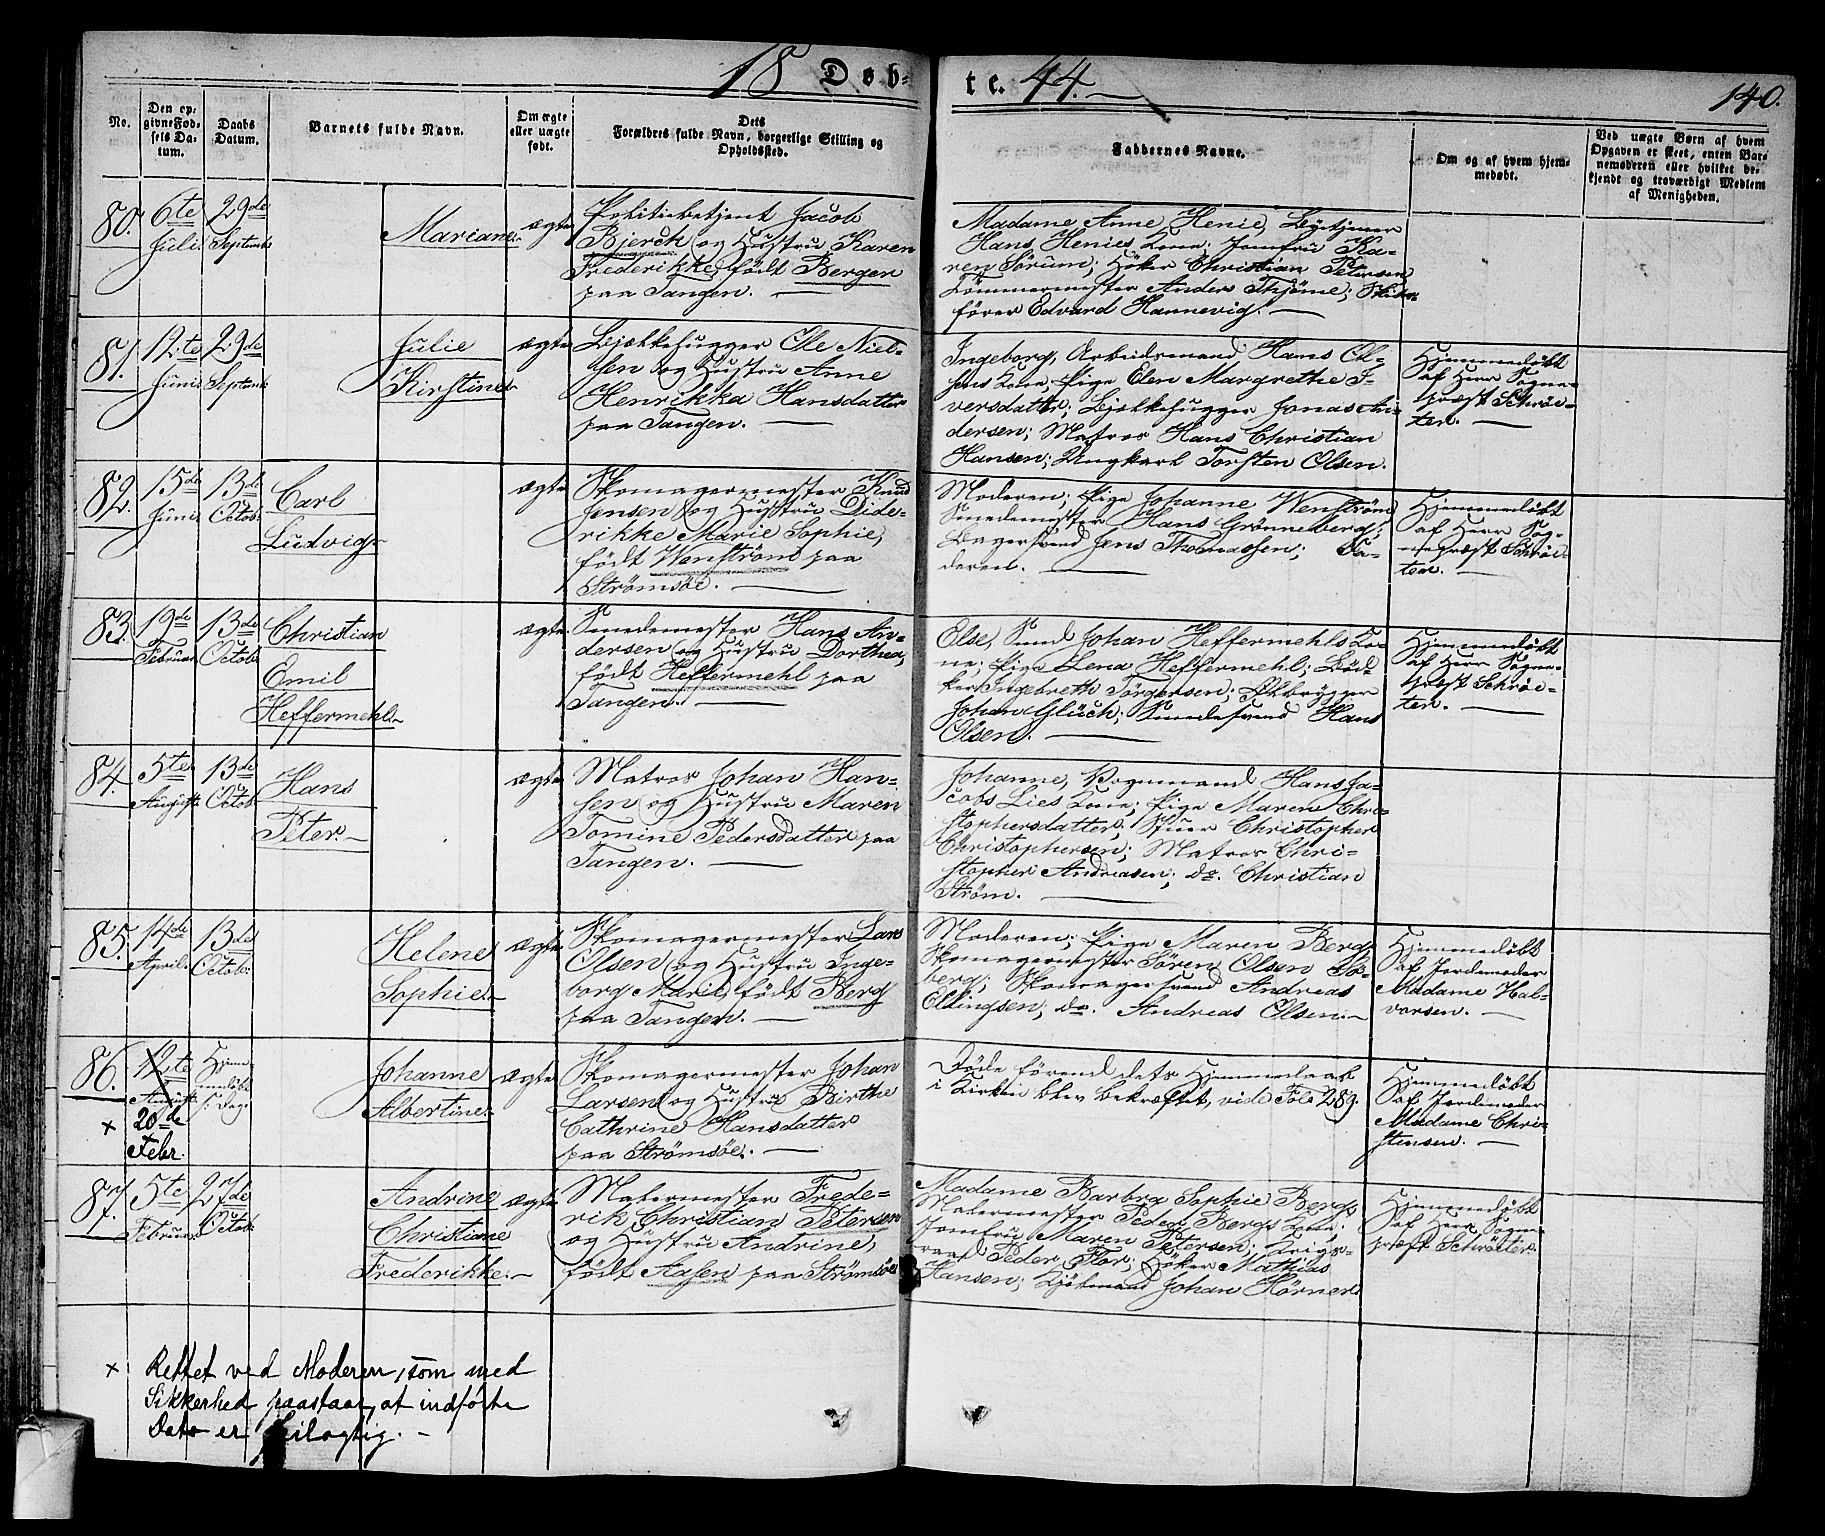 18 Døb-
te. 44.
140.
No.
Den op-
givne Fød-
sels Da-
tum.
Daabs
Datum.
Barnets fulde Navn.
Om ægte
eller uægte
født.
Dets
Forældres fulde Navn, borgerlige Stilling og
Opholdssted.
Faddernes Navne.
Om og af hvem hjem-
medøbt.
Ved uægte Børn af hvem
Opgaven er skeet, enten Bar-
nemoderen eller hvilket be-
kjendt og troværdigt Medlem
af Menigheden.
80.
6te
Juli
29de
Septemb.
Mariane.
ægte
Politiebetjent Jacob
Bjerck og Hustru Karen
Frederikke, født Berger
paa Tangen.
Madame Anne Henie,
Hans Henies Kone; Jomfru Ka-
ren Sørum; Høker Christian Petersen
Tømmermester Anders Thjøme; Skibs-
fører Edvard Hannevig.
81.
12te
Juni
29de
Septemb.
Julie
Kirstine.
ægte
Bjælkehugger Ole Niel-
sen og Hustru Anne
Henrikka Hansdatter
paa Tangen.
Ingeborg, Arbeidsmand Hans Ol-
sens Kone; Pige Elen Margrethe I-
versdatter; Bjælkehugger Jonas An-
dersen; Matros Hans Christian
Hansen; Ungkarl Torsten Olsen.
Hjemmedøbt
af Herr Sogne-
præst Schrøe-
ter.
82.
15de
Juni
13de
Octob.
Carl
Ludvig.
ægte
Skomagermester Knud
Jensen og Hustru Dide-
rikke Marie Sophie,
født Wenstrøm paa
Strømsøe.
Moderen; Pige Johanne Wenstrøm
Smedemester Hans Grønneberg;
Bagersvend Jens Thomassen; Fa-
deren.
Hjemmedøbt
af Herr Sog-
nepræst Schrøe-
ter.
83.
19de
Februar
13de
Octob.
Christian
Emil
Heffermehl.
ægte
Smedemester Hans An-
dersen og Hustru Dorthea,
født Heffermehl paa
Tangen.
Else, Smed Johan Heffermehls Ko-
ne; Pige Lena Heffermehl; Bød-
ker Ingebreth Torgersen; Ølbrygger
Johan Glück; Smedesvend Hans
Olsen.
Hjemmedøbt
af Herr Sogne-
præst Schrøe-
ter.
84.
5te
August
13de
Octob.
Hans
Peter.
ægte
Matros Johan Han-
sen og Hustru Maren
Tomine Pedersdatter paa
Tangen.
Johanne, Vognmand Hans Ja-
cobs Lies Kone; Pige Maren Chri-
stophersdatter; Stuer Christopher
Christophersen; Matros Chri-
stopher Andreasen; do. Christian
Strøm.
85.
14de
April
13de
Octob.
Helene
Sophie.
ægte
Skomagermester Lars
Olsen og Hustru Inge-
borg Marie, født Berg
paa Tangen.
Moderen; Pige Maren Berg
Skomagermester Søren Olsen
berg; Skomagersvend Andreas
Ellingsen; do. Andreas Olsen.
Hjemmedøbt
af Jordemoder
Madame Hal-
vorsen.
86.
12te
August
× 20de
Febr.
Hjem-
medøbt
s. Dag.
Johanne
Albertine.
ægte
Skomagermester Johan
Larsen og Hustru Birthe
Cathrine Hansdatter
paa Strømsøe.
Døde førend dets Hjemmedaab
i Kirken blev bekræftet, vide Fol. 289.
Hjemmedøbt
af Jordemoder
Madame Chri-
stensen.
87.
5te
Februar
27de
Octob.
Andrine
Christiane
Frederikke.
ægte
Malermester Frede-
rik Christian Petersen
og Hustru Andrine,
født Aasen paa Strømsøe
Madame Barbra Sophie Berg,
Malermester Peder Bergs Kone;
Jomfru Maren Petersen; Krigs-
raad Peder Flor; Høker Mathias
Hansen; Kjøbmand Johan Hørner.
Hjemmedøbt
af Herr Sogne-
præst Schrøeter.
× Rettet ved Moderen, som med
Sikkerhed paastaar, at indførte
Dato er feilagtig.